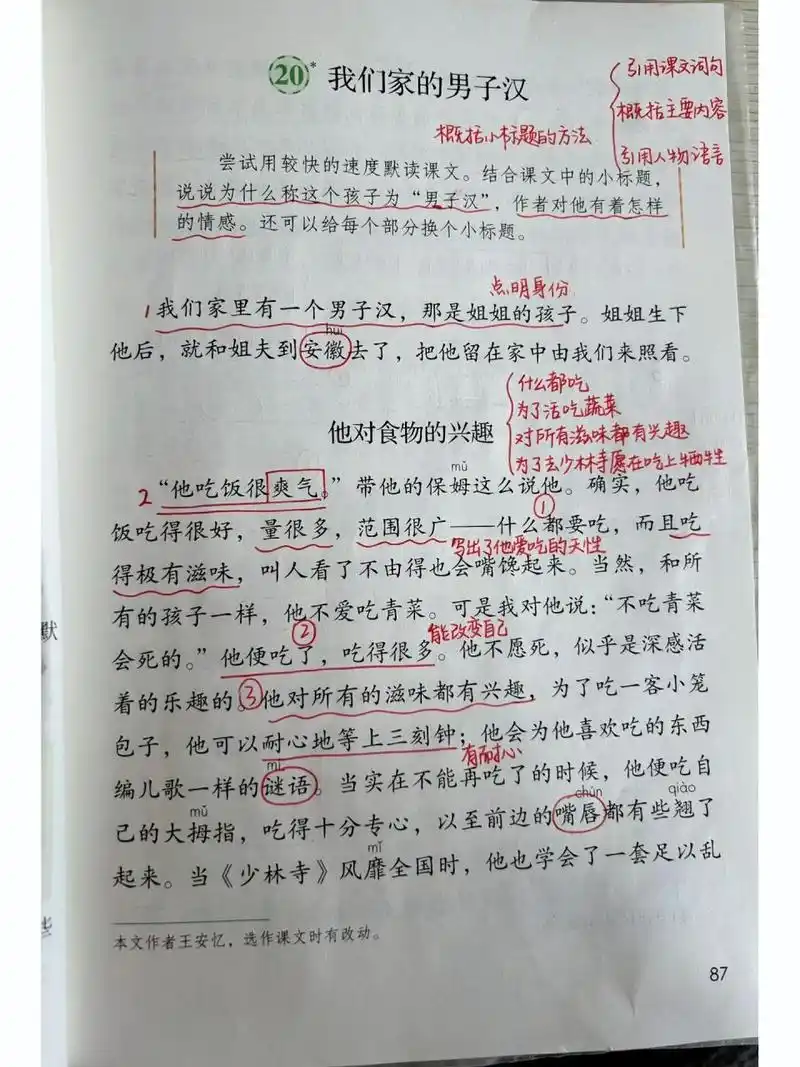 20* 我们家的男子汉
引用课文词句
概括主要内容
引用人物语言
概括小标题的方法
尝试用较快的速度默读课文。结合课文中的小标题，
说说为什么称这个孩子为“男子汉”，作者对他有着怎样
的情感。还可以给每个部分换个小标题。
点明身份
1 我们家里有一个男子汉，那是姐姐的孩子。姐姐生下
huī
他后，就和姐夫到安徽去了，把他留在家中由我们来照看。
他对食物的兴趣
什么都吃
为了活吃蔬菜
对所有滋味都有兴趣
为了去少林寺愿在吃上牺牲
mǔ
2 “他吃饭很爽气。”带他的保姆这么说他。确实，他吃
①
饭吃得很好，量很多，范围很广——什么都要吃，而且吃
写出了他爱吃的天性
得极有滋味，叫人看了不由得也会嘴馋起来。当然，和所
有的孩子一样，他不爱吃青菜。可是我对他说：“不吃青菜
② 能改变自己
会死的。”他便吃了，吃得很多。他不愿死，似乎是深感活
着的乐趣的。③他对所有的滋味都有兴趣，为了吃一客小笼
包子，他可以耐心地等上三刻钟；他会为他喜欢吃的东西
有耐心
mí
编儿歌一样的谜语。当实在不能再吃了的时候，他便吃自
mǔ chún qiào
己的大拇指，吃得十分专心，以至前边的嘴唇都有些翘了
mǐ
起来。当《少林寺》风靡全国时，他也学会了一套足以乱
本文作者王安忆，选作课文时有改动。
87
默
些